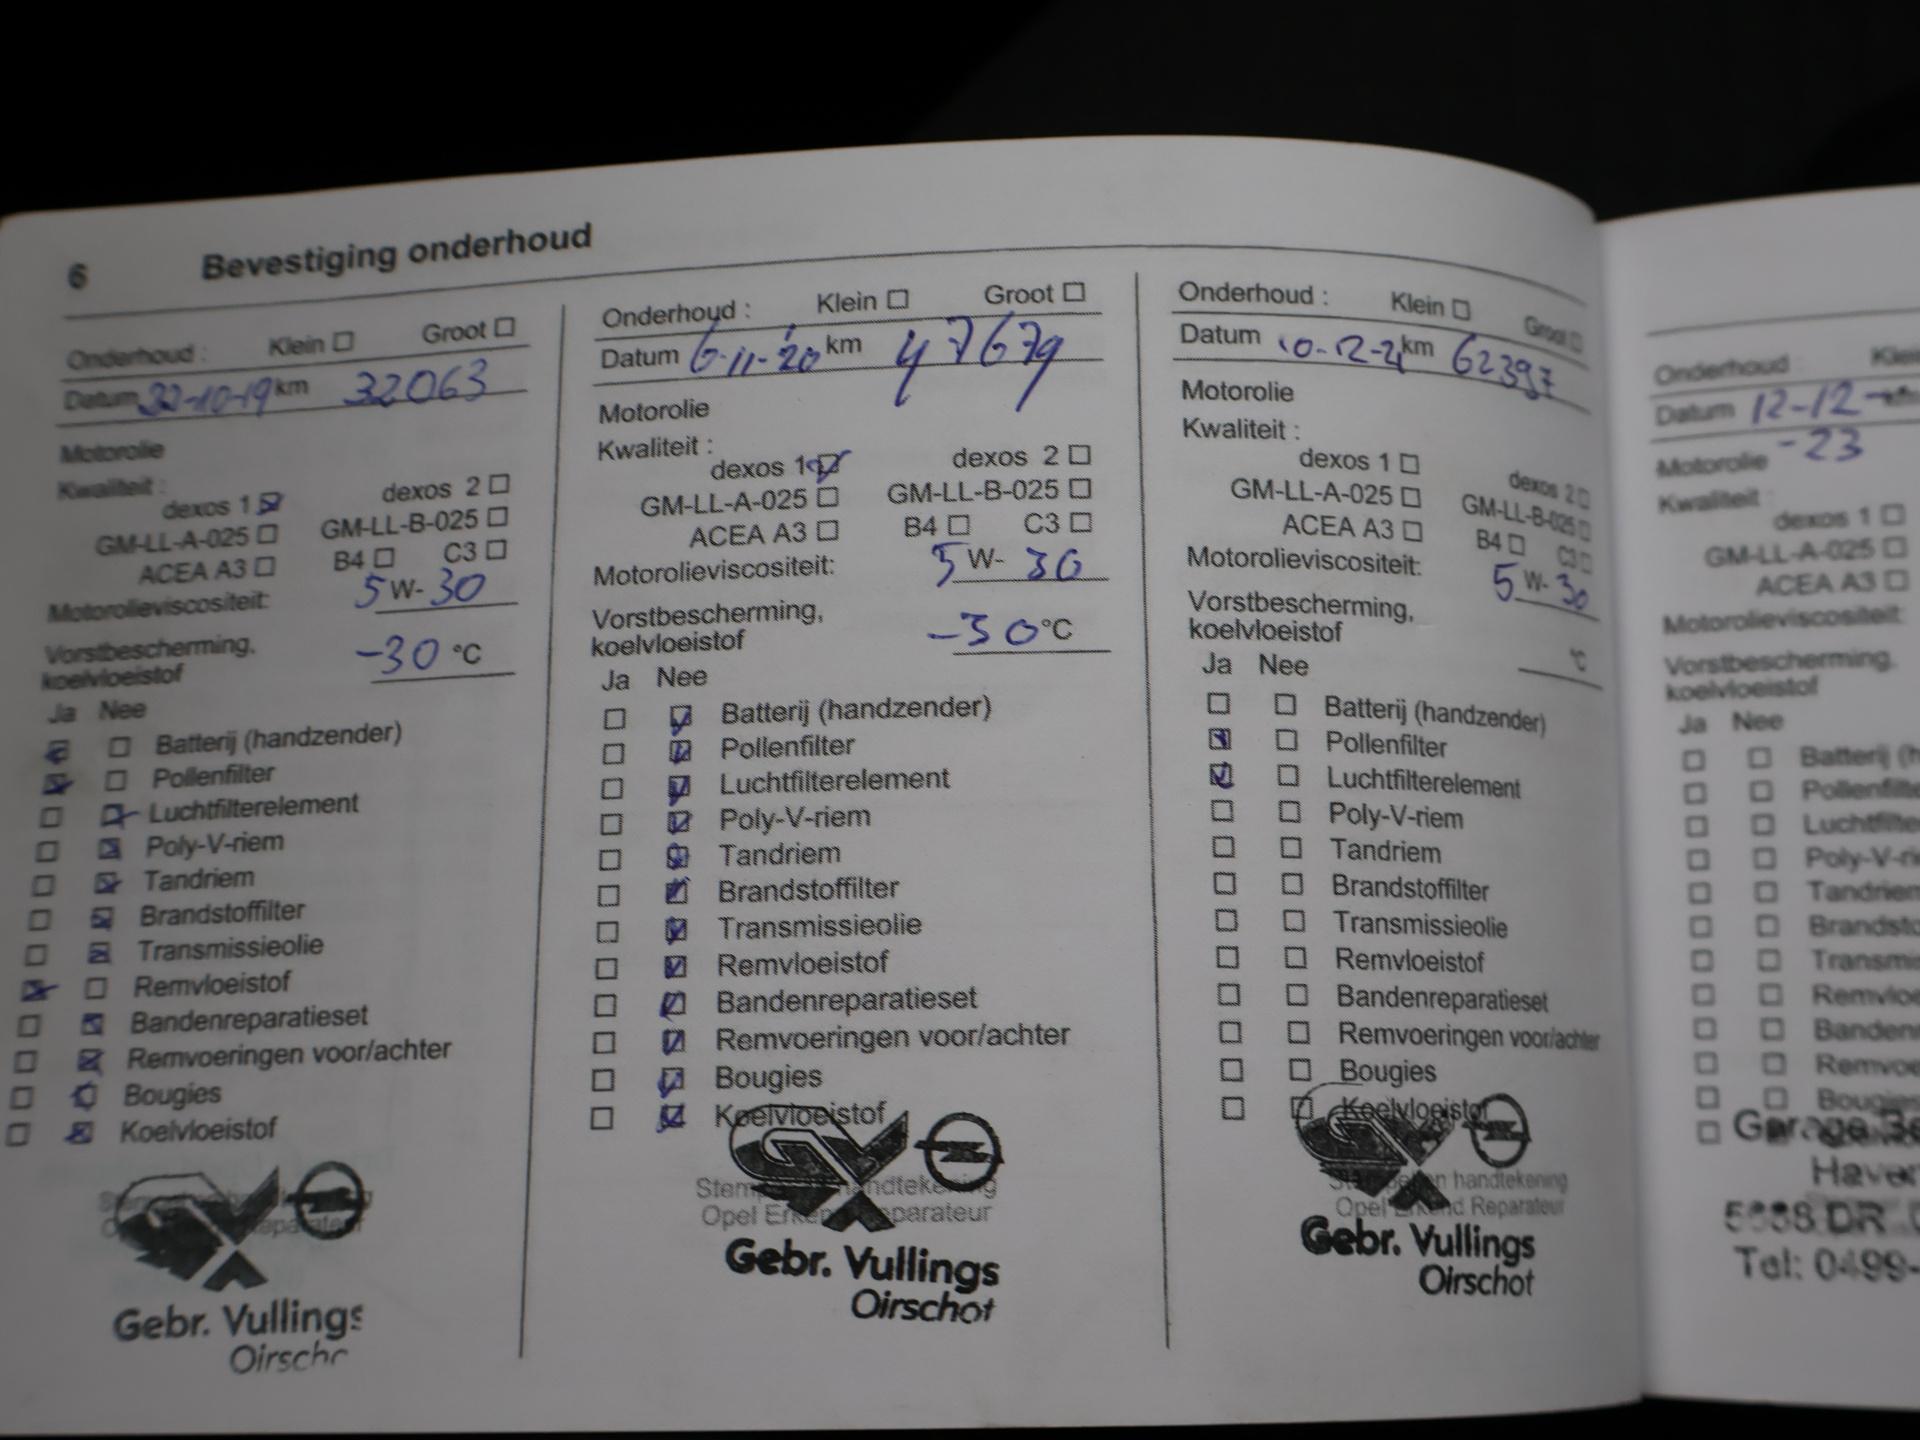 6 Bevestiging onderhoud
Onderhoud : Klein Groot
Datum 22-10-19 km 32063
Motorolie
Kwaliteit :
dexos 1 dexos 2
GM-LL-A-025 GM-LL-B-025
ACEA A3 B4 C3
Motorolieviscositeit: 5 W- 30
Vorstbescherming,
koelvloeistof -30 °C
Ja Nee
Batterij (handzender)
Pollenfilter
Luchtfilterelement
Poly-V-riem
Tandriem
Brandstoffilter
Transmissieolie
Remvloeistof
Bandenreparatieset
Remvoeringen voor/achter
Bougies
Koelvloeistof
Gebr. Vullings
Oirscho
Onderhoud : Klein Groot
Datum 6-11-'20 km 47679
Motorolie
Kwaliteit :
dexos 1 dexos 2
GM-LL-A-025 GM-LL-B-025
ACEA A3 B4 C3
Motorolieviscositeit: 5 W- 30
Vorstbescherming,
koelvloeistof -30 °C
Ja Nee
Batterij (handzender)
Pollenfilter
Luchtfilterelement
Poly-V-riem
Tandriem
Brandstoffilter
Transmissieolie
Remvloeistof
Bandenreparatieset
Remvoeringen voor/achter
Bougies
Koelvloeistof
Stempel handtekening
Opel Erkend Reparateur
Gebr. Vullings
Oirschot
Onderhoud : Klein Groot
Datum 10-12-21 km 62397
Motorolie
Kwaliteit :
dexos 1 dexos 2
GM-LL-A-025 GM-LL-B-025
ACEA A3 B4 C3
Motorolieviscositeit: 5 W- 30
Vorstbescherming,
koelvloeistof °C
Ja Nee
Batterij (handzender)
Pollenfilter
Luchtfilterelement
Poly-V-riem
Tandriem
Brandstoffilter
Transmissieolie
Remvloeistof
Bandenreparatieset
Remvoeringen voor/achter
Bougies
Koelvloeistof
Stempel en handtekening
Opel Erkend Reparateur
Gebr. Vullings
Oirschot
Onderhoud : Klei
Datum 12-12-
-23
Motorolie
Kwaliteit :
dexos 1
GM-LL-A-025
ACEA A3
Motorolieviscositeit:
Vorstbescherming,
koelvloeistof
Ja Nee
Batterij (h
Pollenfilte
Luchtfilte
Poly-V-ri
Tandriem
Brandsto
Transmis
Remvloe
Bandenr
Remvoe
Bougies
Garage
Haver
DR
Tel: 0499-